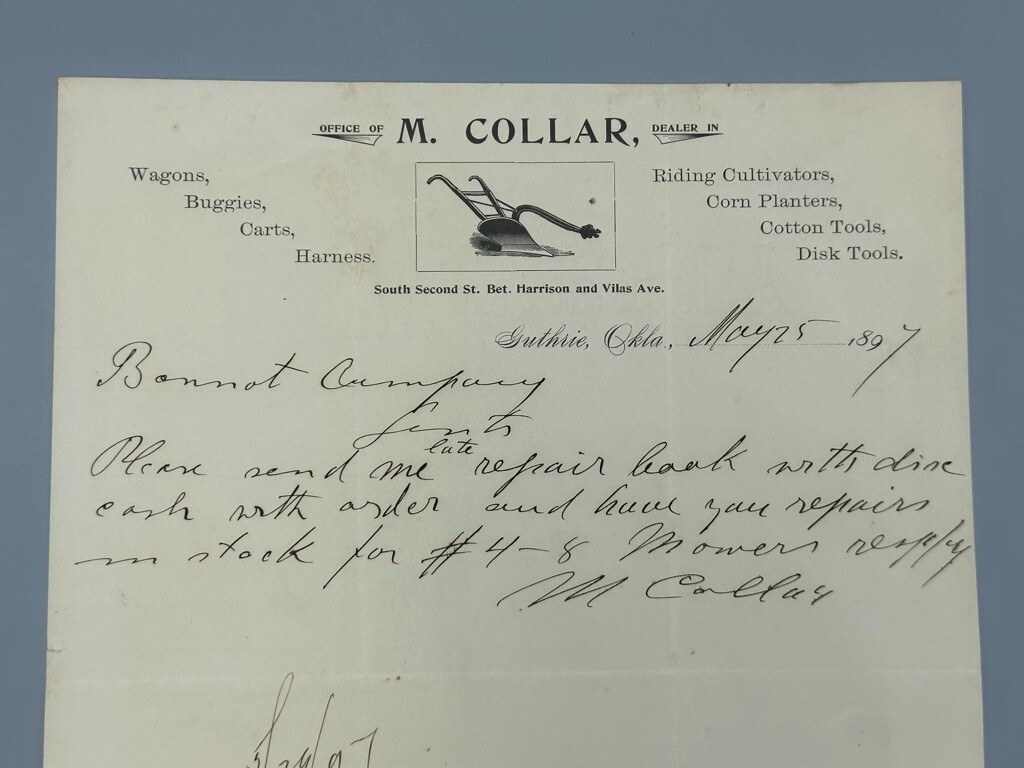 OFFICE OF M. COLLAR, DEALER IN
Wagons,
Buggies,
Carts,
Harness.
Riding Cultivators,
Corn Planters,
Cotton Tools,
Disk Tools.
South Second St. Bet. Harrison and Vilas Ave.
Guthrie, Okla., May 25 1897
Bonnot Company
Gents
Please send me late repair book with disc
cash with order and have you repairs
in stock for #4-8 Mowers respfy
M Collar